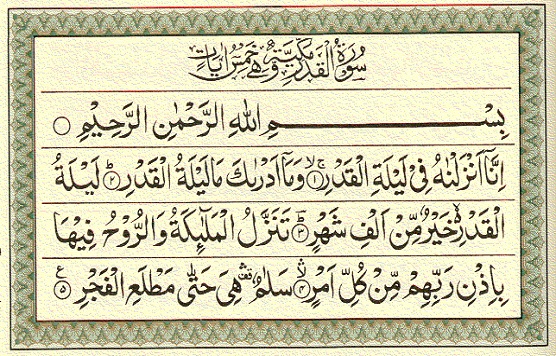 سُوْرَةُ الْقَدْرِ مَكِّيَّةٌ وَّهِيَ خَمْسُ اٰيَاتٍ
بِسْمِ اللهِ الرَّحْمٰنِ الرَّحِيْمِ ○
اِنَّاۤ اَنْزَلْنٰهُ فِيْ لَيْلَةِ الْقَدْرِ ۝١ وَمَاۤ اَدْرٰىكَ مَا لَيْلَةُ الْقَدْرِ ۝٢ لَيْلَةُ
الْقَدْرِ خَيْرٌ مِّنْ اَلْفِ شَهْرٍ ۝٣ تَنَزَّلُ الْمَلٰٓئِكَةُ وَالرُّوْحُ فِيْهَا
بِاِذْنِ رَبِّهِمْ مِّنْ كُلِّ اَمْرٍ ۝٤ سَلٰمٌ هِيَ حَتّٰى مَطْلَعِ الْفَجْرِ ۝٥ ع